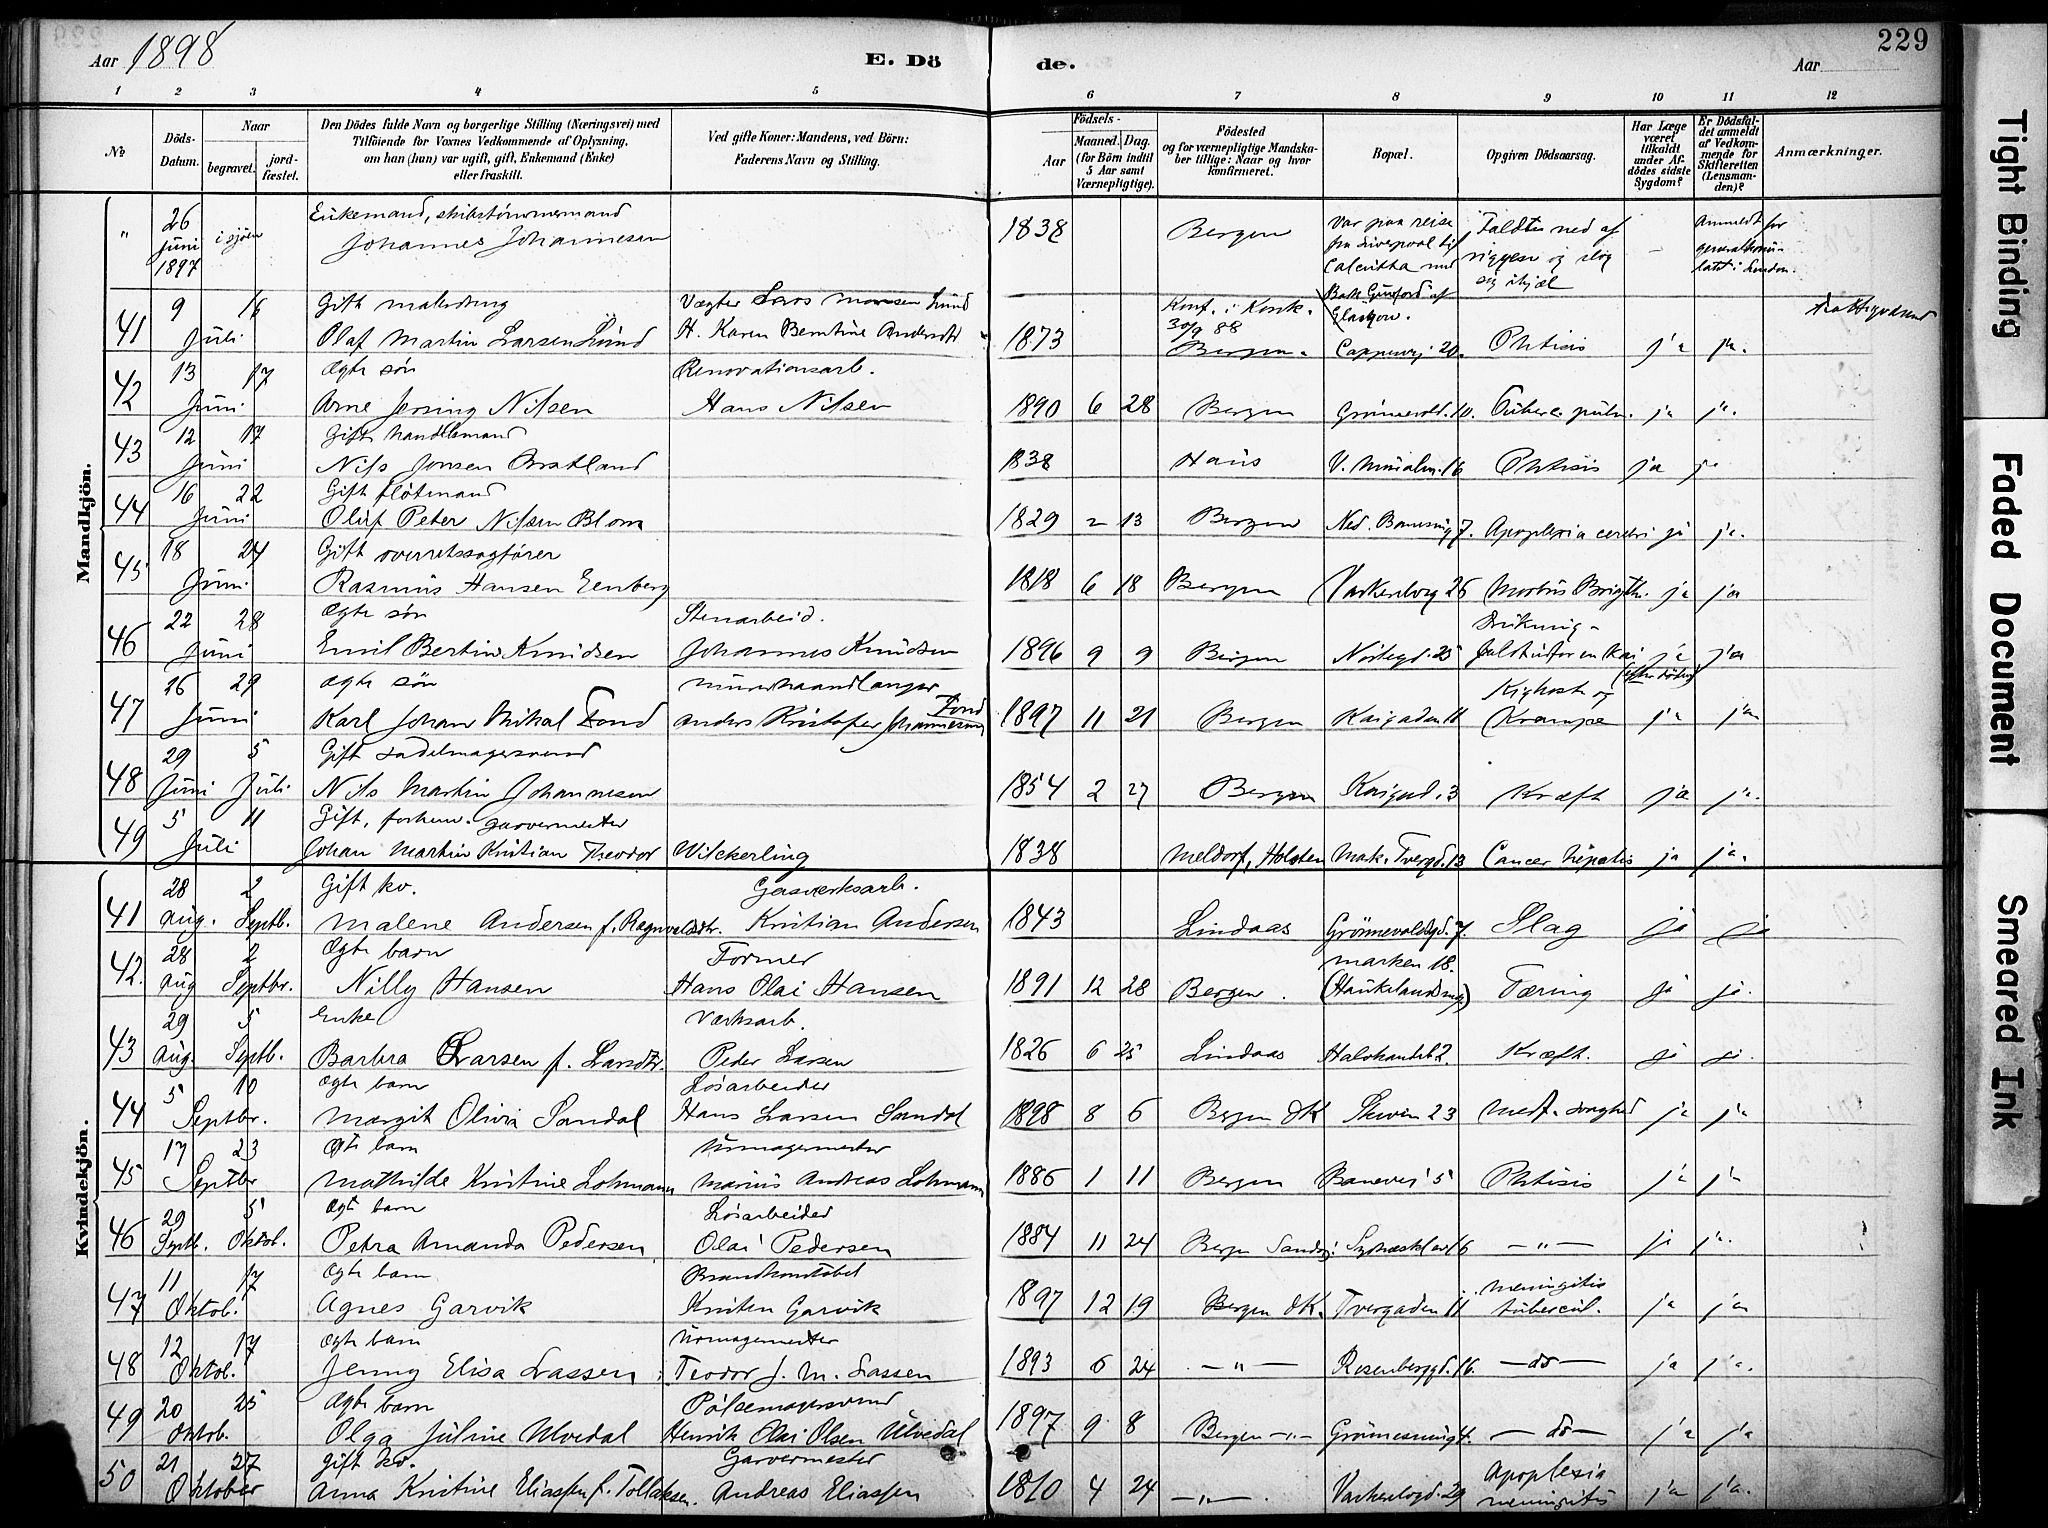 Aar 1898
E. Dö
de.
229
Aar
1 2 3 4 5 6 7 8 9 10 11 12
№
Döds-Datum.
Naar
begravet.
jord-fæstet.
Den Dödes fulde Navn og borgerlige Stilling (Næringsvei) med
Tilföiende for Voxnes Vedkommende af Oplysning,
om han (hun) var ugift, gift, Enkemand (Enke)
eller fraskilt.
Ved gifte Koner: Mandens, ved Börn:
Faderens Navn og Stilling.
Födsels-
Aar
Maaned. Dag.
(for Börn indtil
5 Aar samt
Værnepligtige).
Födested
og for værnepligtige Mandska-
ber tillige: Naar og hvor
konfirmeret.
Bopæl.
Opgiven Dödsaarsag.
Har Læge
været
tilkaldt
under Af-
dödes sidste
Sygdom?
Er Dödsfal-
det anmeldt
af Vedkom-
mende for
Skifteretten
(Lensman-
den)?
Anmærkninger.
Mandkjön.
" 26 Juni 1897 i sjøen Enkemand, skibstømmermand
Johannes Johannesen 1838 Bergen Var paa reise fra Liverpool til Calcutta med Bark Guxford af Glasgow. Faldt ned af riggen og slog sig ihjel — Anmeldt for generalkonsulatet i London.
41 9 16 Juli Gift
Olaf Martin Larsen Lund Vægter Lars Monsen Lund
H. Karen Berntine 1873 Konf. i Korsk. 30/9 88 Bergen. 20. Phtisis ja ja.
42 13 17 Juni Ægte søn
Arne Jersing Nilsen Renovationsarb.
Hans Nilsen 1890 6 28 Bergen Grønnevold. 10. Tuberc. pulm. ja ja.
43 12 17 Juni Gift handelsmand
Nils Jonsen Bratland 1838 Haus 16 Phtisis ja ja
44 16 22 Juni Gift fløtmand
Oluf Peter Nilsen Blom 1829 2 13 Bergen Ned. 7. Apoplexia cerebri ja ja.
45 18 24 Juni Gift overretssagfører
Rasmus Hansen Eenberg 1818 6 18 Bergen Vaskerelvg 26 Morbus Brigth. ja ja
46 22 28 Juni Ægte søn
Emil Bertin Knudsen Stenarbeid.
Johannes Knudsen 1896 9 9 Bergen Nøstegd. 25 Drukning - faldt ud for en Kai ja (efter døden) ja
47 26 29 Juni Ægte søn
Karl Johan Mikal Fond Murerhaandlanger
Anders Kristofer Johannesen Fond 1897 11 21 Bergen Kaigaden 11 Kighoste og Krampe ja ja
48 29 Juni 5 Juli Gift sadelmagersvend
Nils Martin Johannesen 1854 2 27 Bergen Kaigad. 3 Kræft ja ja.
49 5 11 Juli Gift, forhenv. garvermester
Johan Martin Kristian Theodor Wilckerling 1838 Meldorf, Holsten Mark. Tvergd. 13 Cancer hepatis ja ja.
Kvindekjön.
41 28 Aug. 2 Septb. Gift kv.
Malene Andersen f. Ragnvaldsdtr. Gasværksarb.
Kristian Andersen 1843 Lindaas Grønnevoldsgd. 7. Slag ja ja
42. 28 Aug 2 Septbr. Ægte barn
Nilly Hansen Former
Hans Olai Hansen 1891 12 28 Bergen. marken 18. (Haukelandsvei) Tæring ja ja.
43 29 Aug. 5 Septb. Enke
Barbra Larsen f. Larsdtr. Værksarb.
Peder Larsen 1826 6 25 Lindaas 2. Kræft. ja ja.
44 5 10 Septbr. Ægte barn
Margit Olivia Sandal Løsarbeider
Hans Larsen Sandal 1898 8 6 Bergen DK Skiven 23 Medf. svaghed ja ja
45 17 23 Septbr Ægte barn
Mathilde Kristine Lohmann Urmagermester
Marius Andreas Lohmann 1886 1 11 Bergen Banevei 5 Phtisis ja ja
46 29 Septb. 5 Oktob. Ægte barn
Petra Amanda Pedersen Løsarbeider
Olai Pedersen 1884 11 24 Bergen 16 — " — ja ja.
47 11 17 Oktob. Ægte barn
Agnes Garvik Brandkonstabel
Knisten Garvik 1897 12 19 Bergen DK. Tvergaden 11 meningitis tubercul. ja ja
48 12 17 Oktob. Ægte barn
Jenny Elisa Lassen Urmagermester
Teodor J. M. Lassen 1893 6 24 — " — Rosenberggd. 16. —do— ja ja.
49 20 25 Oktob. Ægte barn
Olga Juline Ulvedal Pølsemagersvend
Henrik Olai Olsen Ulvedal 1897 9 8 Bergen —"— 4. — do — ja ja
50 21 27 Oktober Gift kv.
Anna Kristine Eliassen f. Tollaksen. Garvermester
Andreas Eliassen 1810 4 24 — " —. 29 Apoplexia meningitis ja ja.
Tight Binding
Faded Document
Smeared Ink